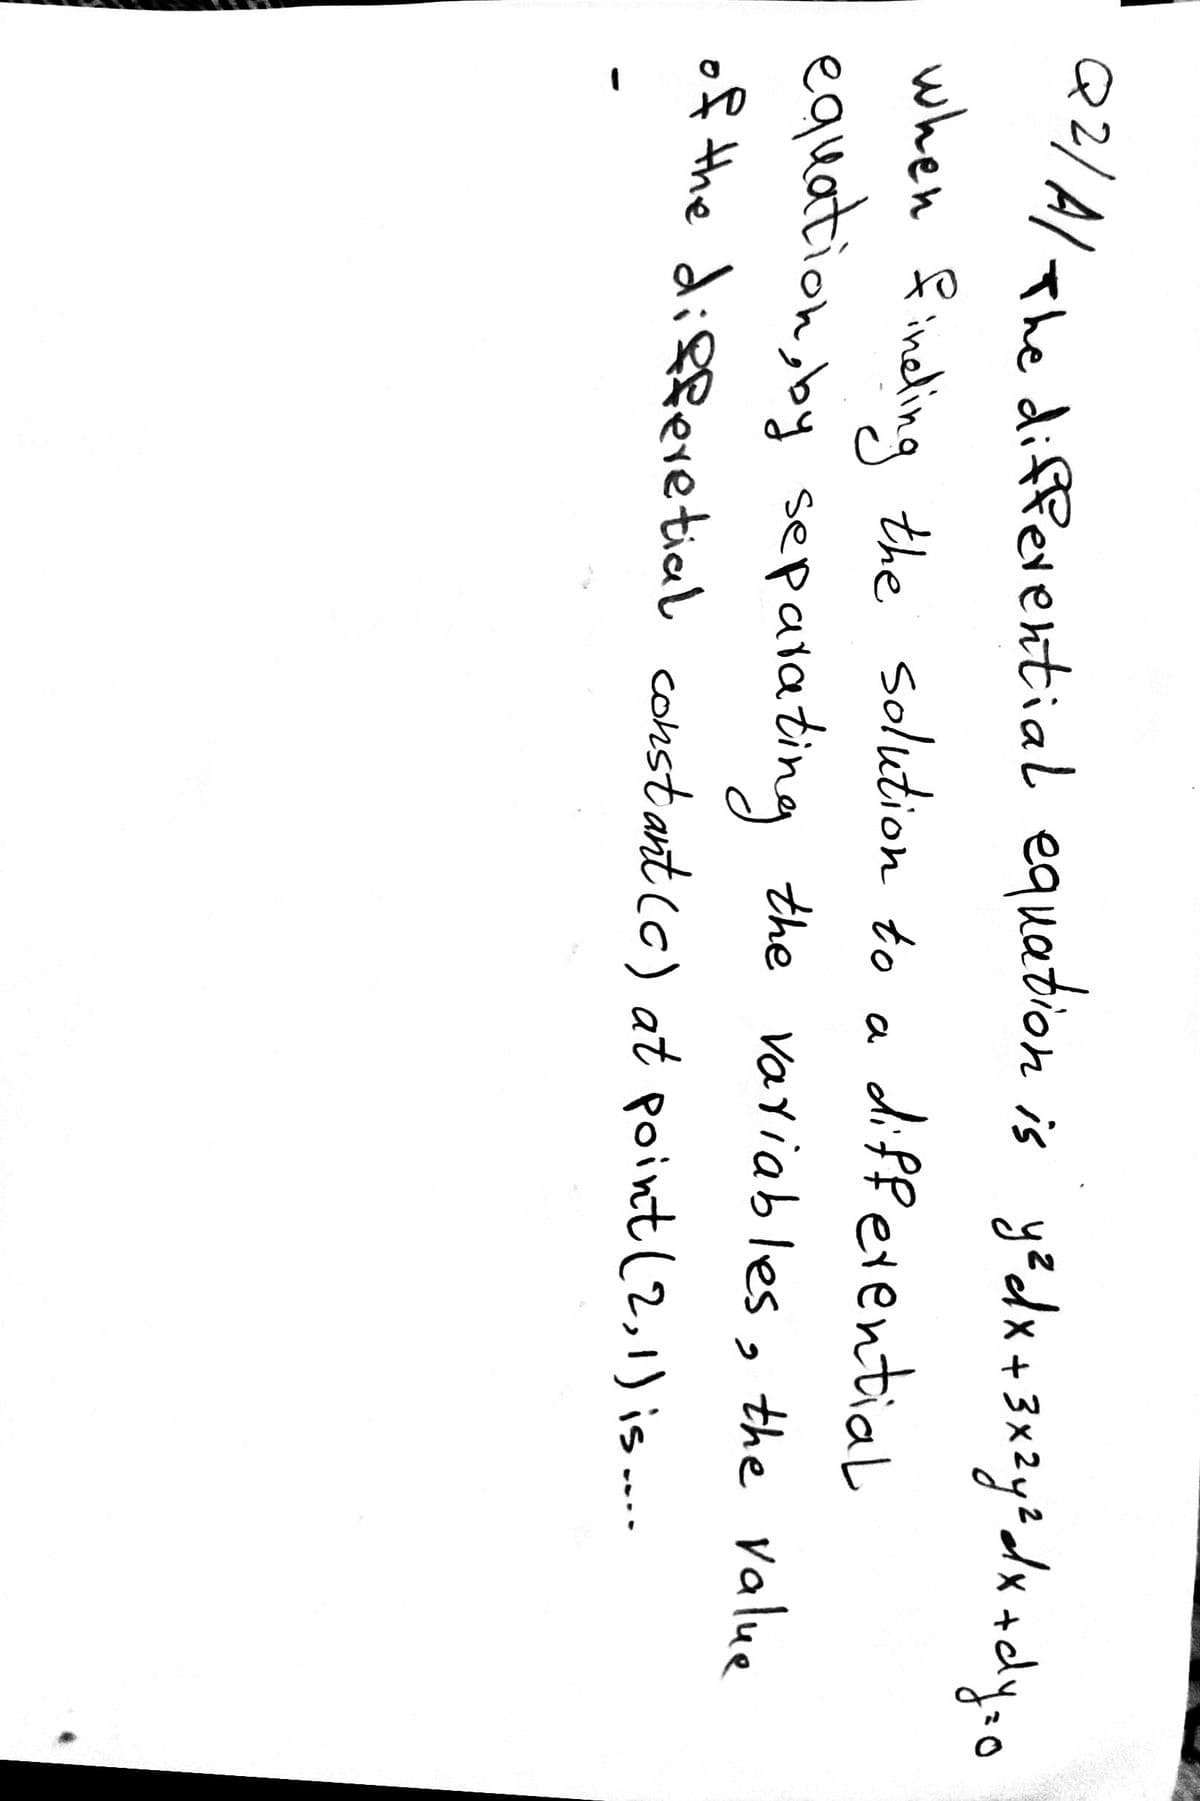 Q2/A/ The differential equation is y²dx+3x²y²dx+dy=0
when finding the solution to a differential
equation, by separating the variables, the value
of the differetial constant (c) at point (2,1) is.....
-